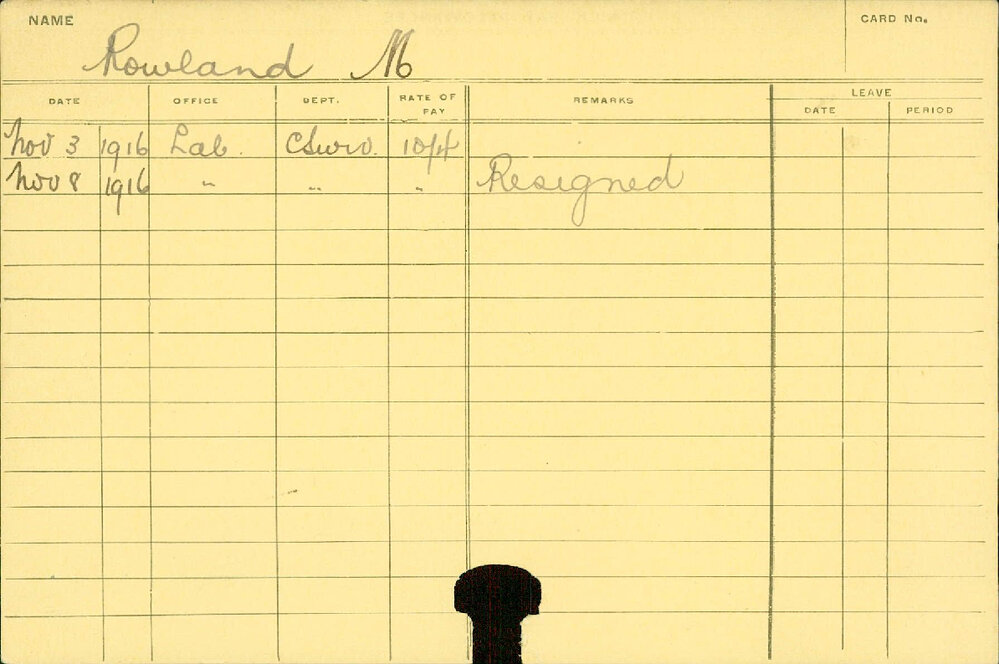 NAME
CARD No.
Rowland M
DATE OFFICE DEPT. RATE OF PAY REMARKS LEAVE
DATE PERIOD
Nov 3 1916 Lab. 10/4
Nov 8 1916 " " " Resigned